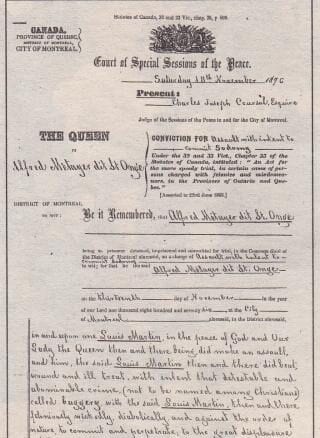 Statutes of Canada, 32 and 33 Vic., chap. 35, p 809.
CANADA,
PROVINCE OF QUEBEC,
DISTRICT OF MONTREAL,
CITY OF MONTREAL.
Court of Special Sessions of the Peace.
Saturday 18th November 1876
Present:
Charles Joseph Coursol, Esquire
Judge of the Sessions of the Peace in and for the City of Montreal.
THE QUEEN
vs
Alfred Métayer dit St. Onge
CONVICTION FOR Assault with intent to
commit Sodomy
Under the 32 and 33 Vict., Chapter 35 of the
Statutes of Canada, intituled: "An Act for
the more speedy trial, in certain cases of per-
sons charged with felonies and misdemea-
nors, in the Provinces of Ontario and Que-
bec."
[Assented to 22nd June 1869.]
DISTRICT OF MONTREAL
to wit:
Be it Remembered, that Alfred Métayer dit St. Onge
being a prisoner detained, imprisoned and committed for trial, in the Common Gaol of
the District of Montreal aforesaid, on a charge of Assault with intent to
commit Sodomy
to wit; for that he the said
Alfred Métayer dit St. Onge
on the thirteenth day of November in the year
of our Lord one thousand eight hundred and seventy six at the City
of Montreal aforesaid, in the District aforesaid,
in and upon one Louis Martin, in the peace of God and Our
Lady the Queen then and there being, did make an assault,
and him, the said Louis Martin then and there did beat,
wound and ill treat, with intent that detestable and
abominable crime, (not to be named among Christians)
called buggery with the said Louis Martin, then and there
feloniously, wickedly, diabolically and against the order of
nature to commit and perpetrate, to the great displeasure